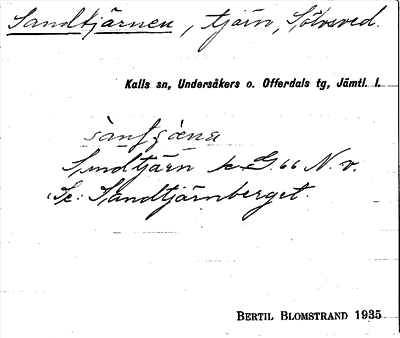 Sandtjärnen, tjärn, Sölvsved.
Kalls sn, Undersåkers o. Offerdals tg, Jämtl. l.
Sundtjärn k G. 66 N. v.
Se: Sandtjärnberget.
BERTIL BLOMSTRAND 1935